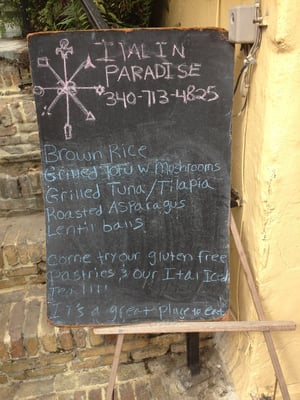 ITAL IN
PARADISE
340-713-4825
Brown Rice
Grilled Tofu w. Mushrooms
Grilled Tuna/Tilapia
Roasted Asparagus
Lentil balls.
Come try our gluten free
Pastries & our Ital Iced
Tea!!!!
It's a great place to eat